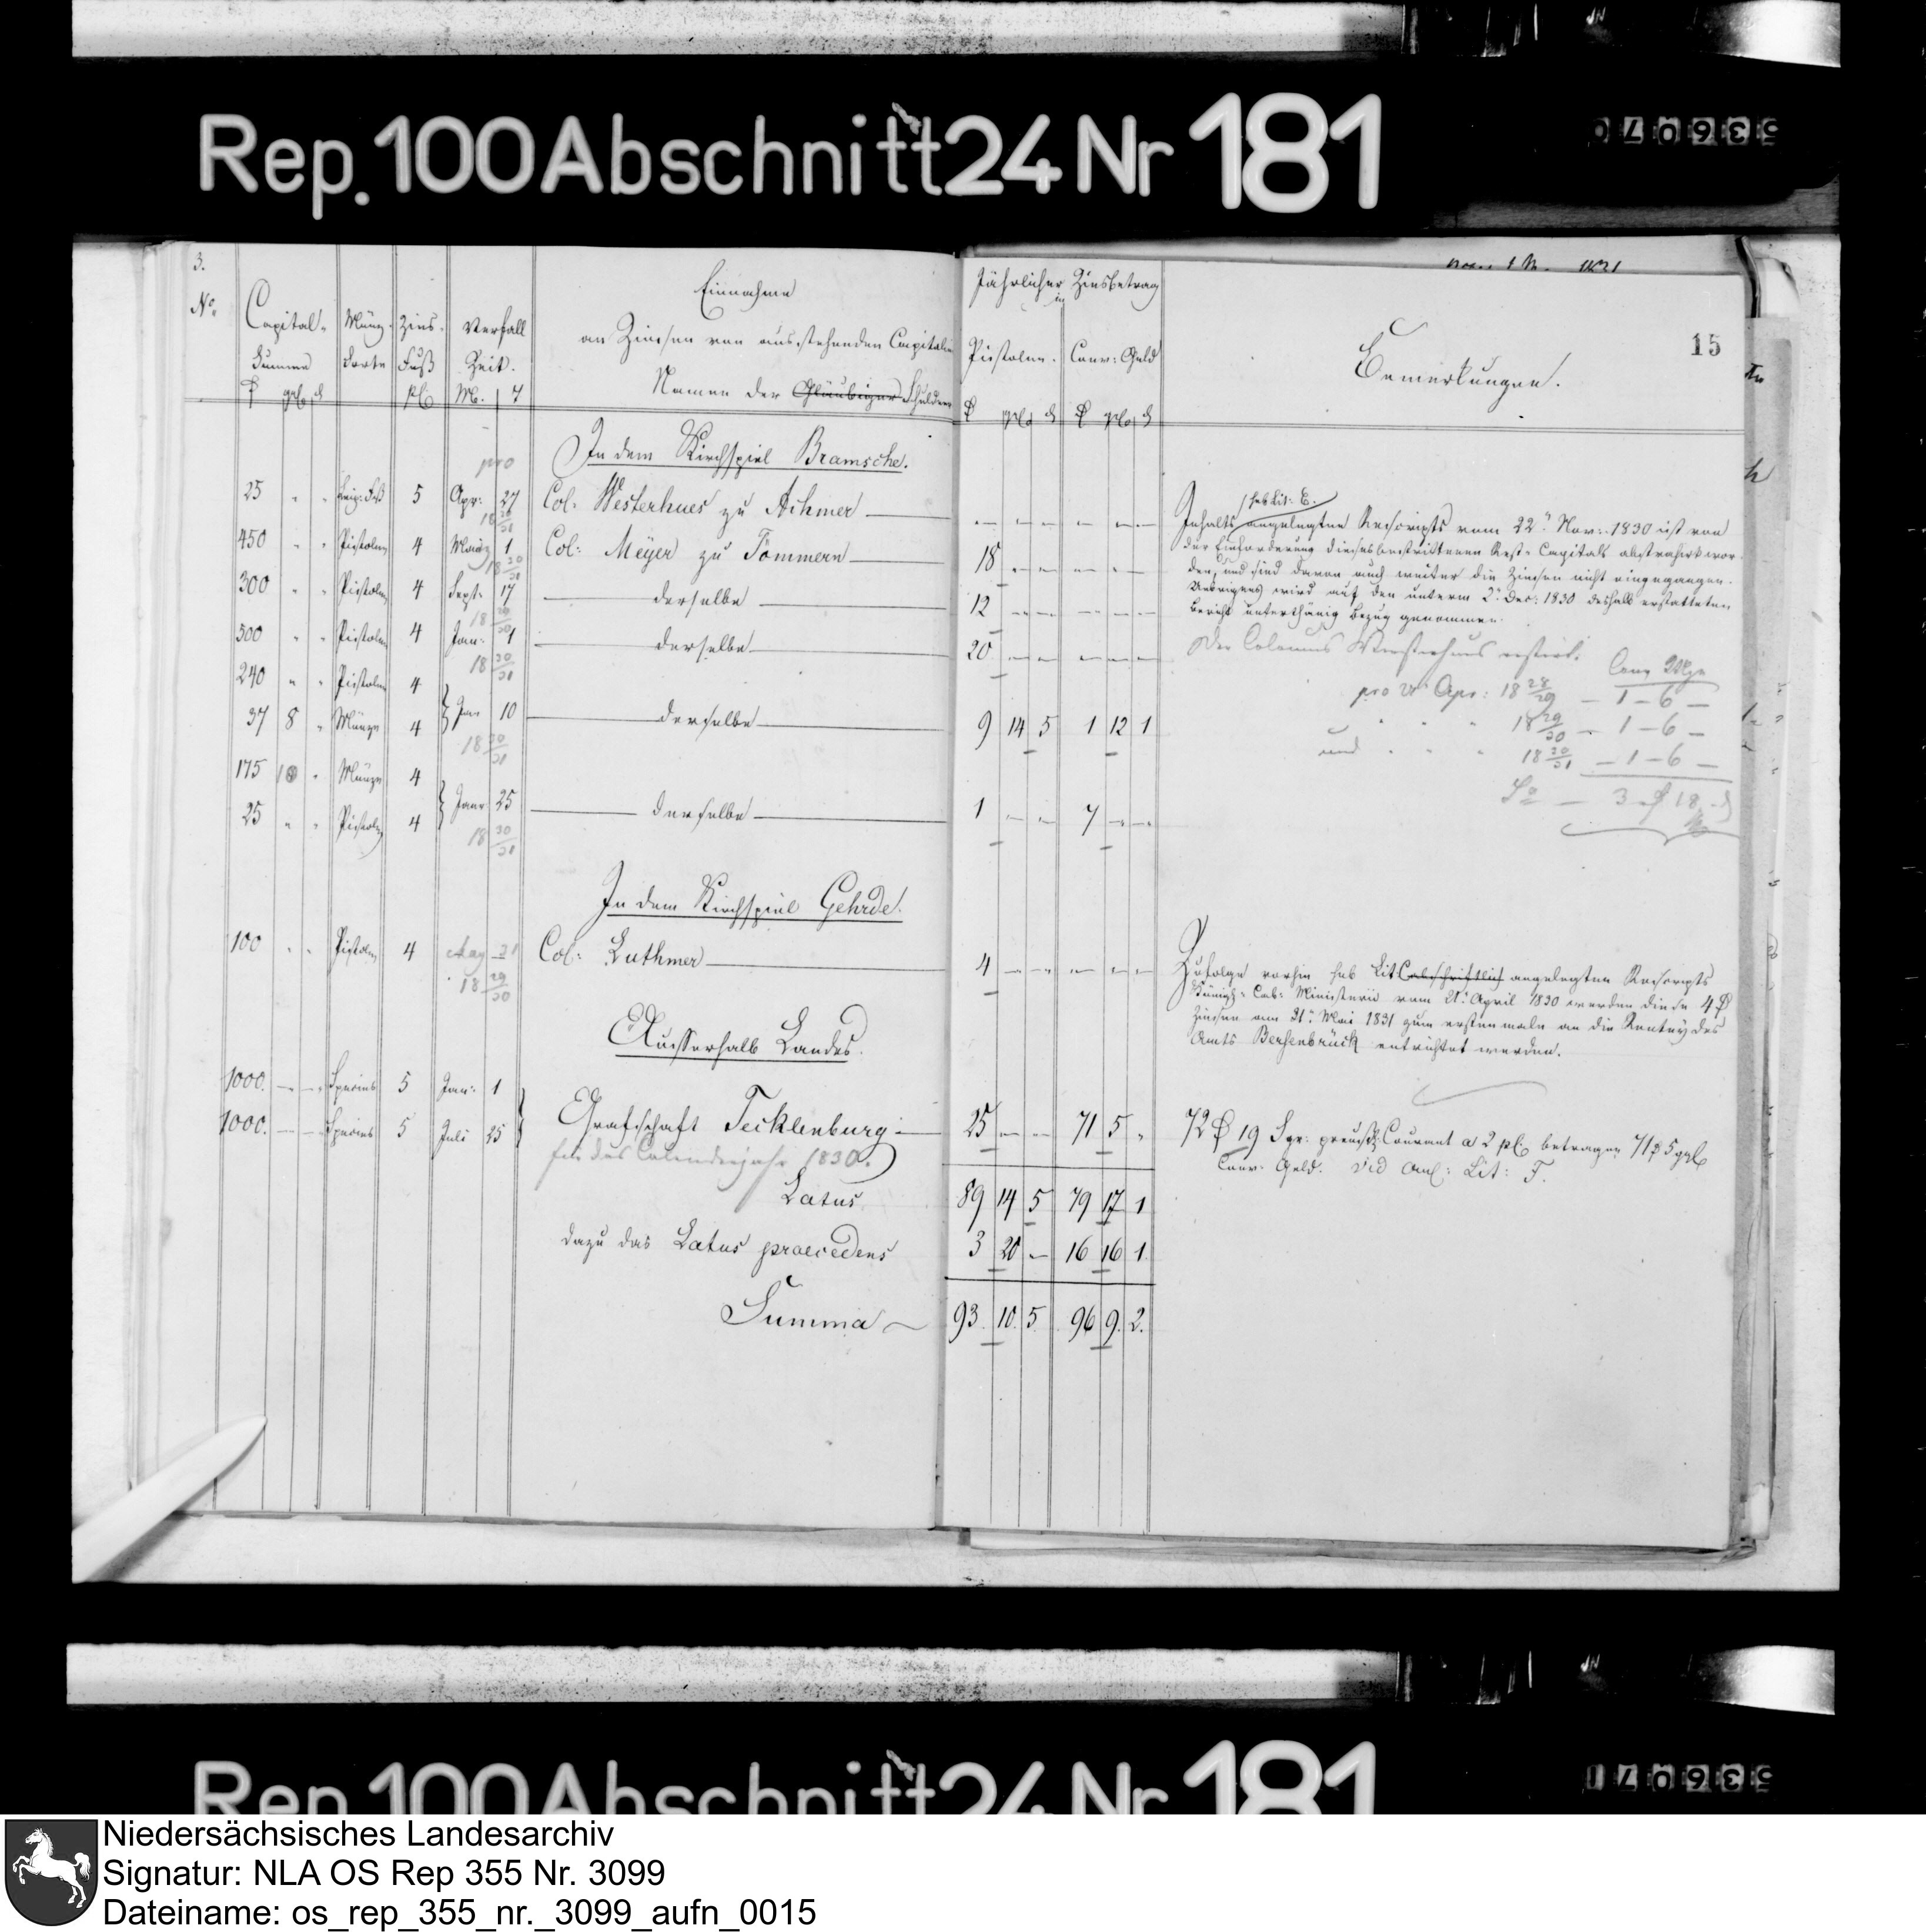 Rep. 100 Abschnitt 24 Nr 181
3.
No.
Capital-
Summe
Münz-
Sorte
Zins-
Fuß
pC
Verfall
Zeit.
M. T
Einnahme
an Zinsen von ausstehenden Capitalien
Namen der Gläubiger Schuldner
Jährlicher Zinsbetrag
in
Pistolen. Conv: Geld
Bemerkungen.
15
In dem Kirchspiel Bramsche.
pro
25 " " 5 Apr: 27 Col: Westerhues zu Achmer
18 30/31
450 " " Pistolen 4 Maerz 1 Col: Meyer zu Tömmern 18 — —
18 30/31
300 " " Pistolen 4 Sept: 17 derselbe 12 — —
18 29/30
500 " " Pistolen 4 Jan: 1 derselbe 20 — —
18 30/31
240 " " Pistolen 4
37 8 " Münze 4 Jan 10 derselbe 9 14 5 1 12 1
18 30/31
175 10 " Münze 4
25 " " Pistolen 4 Janr 25 derselbe 1 — — 7 — —
18 30/31
sub Lit: E.
Inhalts angelegten Rescripts vom 22ten Nov: 1830 ist von
der Einforderung dieses bestrittenen Rest-Capitals abstrahirt wor-
den, und sind davon auch weiter die Zinsen nicht eingegangen.
Uebrigens wird auf den unterm 2ten Dec: 1830 deshalb erstatteten
Bericht unterthänig Bezug genommen.
Der Colonus Westerhues restirt.
Conv Mze
pro 27 Apr: 18 28/29 — 1 — 6 —
" " " 18 29/30 — 1 — 6 —
und " " " 18 30/31 — 1 — 6 —
Sa — 3 18
In dem Kirchspiel Gehrde.
100 " " Pistolen 4 May 21 Col: Luthmer 4 — —
18 29/30
Zufolge vorhin sub Lit C abschriftlich angelegten Rescripts
Königl: Cab: Ministerii vom 21ten April 1830 werden diese 4
Zinsen am 21ten Mai 1831 zum erstenmale an die Rentey des
Amts Bersenbrück entrichtet werden.
Ausserhalb Landes.
1000. — — Species 5 Jan: 1
1000. — — Species 5 Juli 25 Grafschaft Tecklenburg 25 — — 71 5 "
für das Calenderjahr 1830.
72 19 Sgr: preuß: Courant a 2 pC betragen 71 5 ggl
Conv: Geld. vid Anl: Lit: F.
Latus 89 14 5 79 17 1
dazu das Latus praecedens 3 20 — 16 16 1
Summa 93 10 5 96 9 2.
Rep. 100 Abschnitt 24 Nr 181
Niedersächsisches Landesarchiv
Signatur: NLA OS Rep 355 Nr. 3099
Dateiname: os_rep_355_nr._3099_aufn_0015